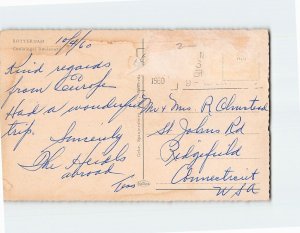 ROTTERDAM
10/4/60
Kind regards
from Europe
Had a wonderful
trip.
Sincerely
The Heidls
abroad
1960
Mr & Mrs. R Olmstead
St Johns Rd
Ridgefield
Connecticut
USA